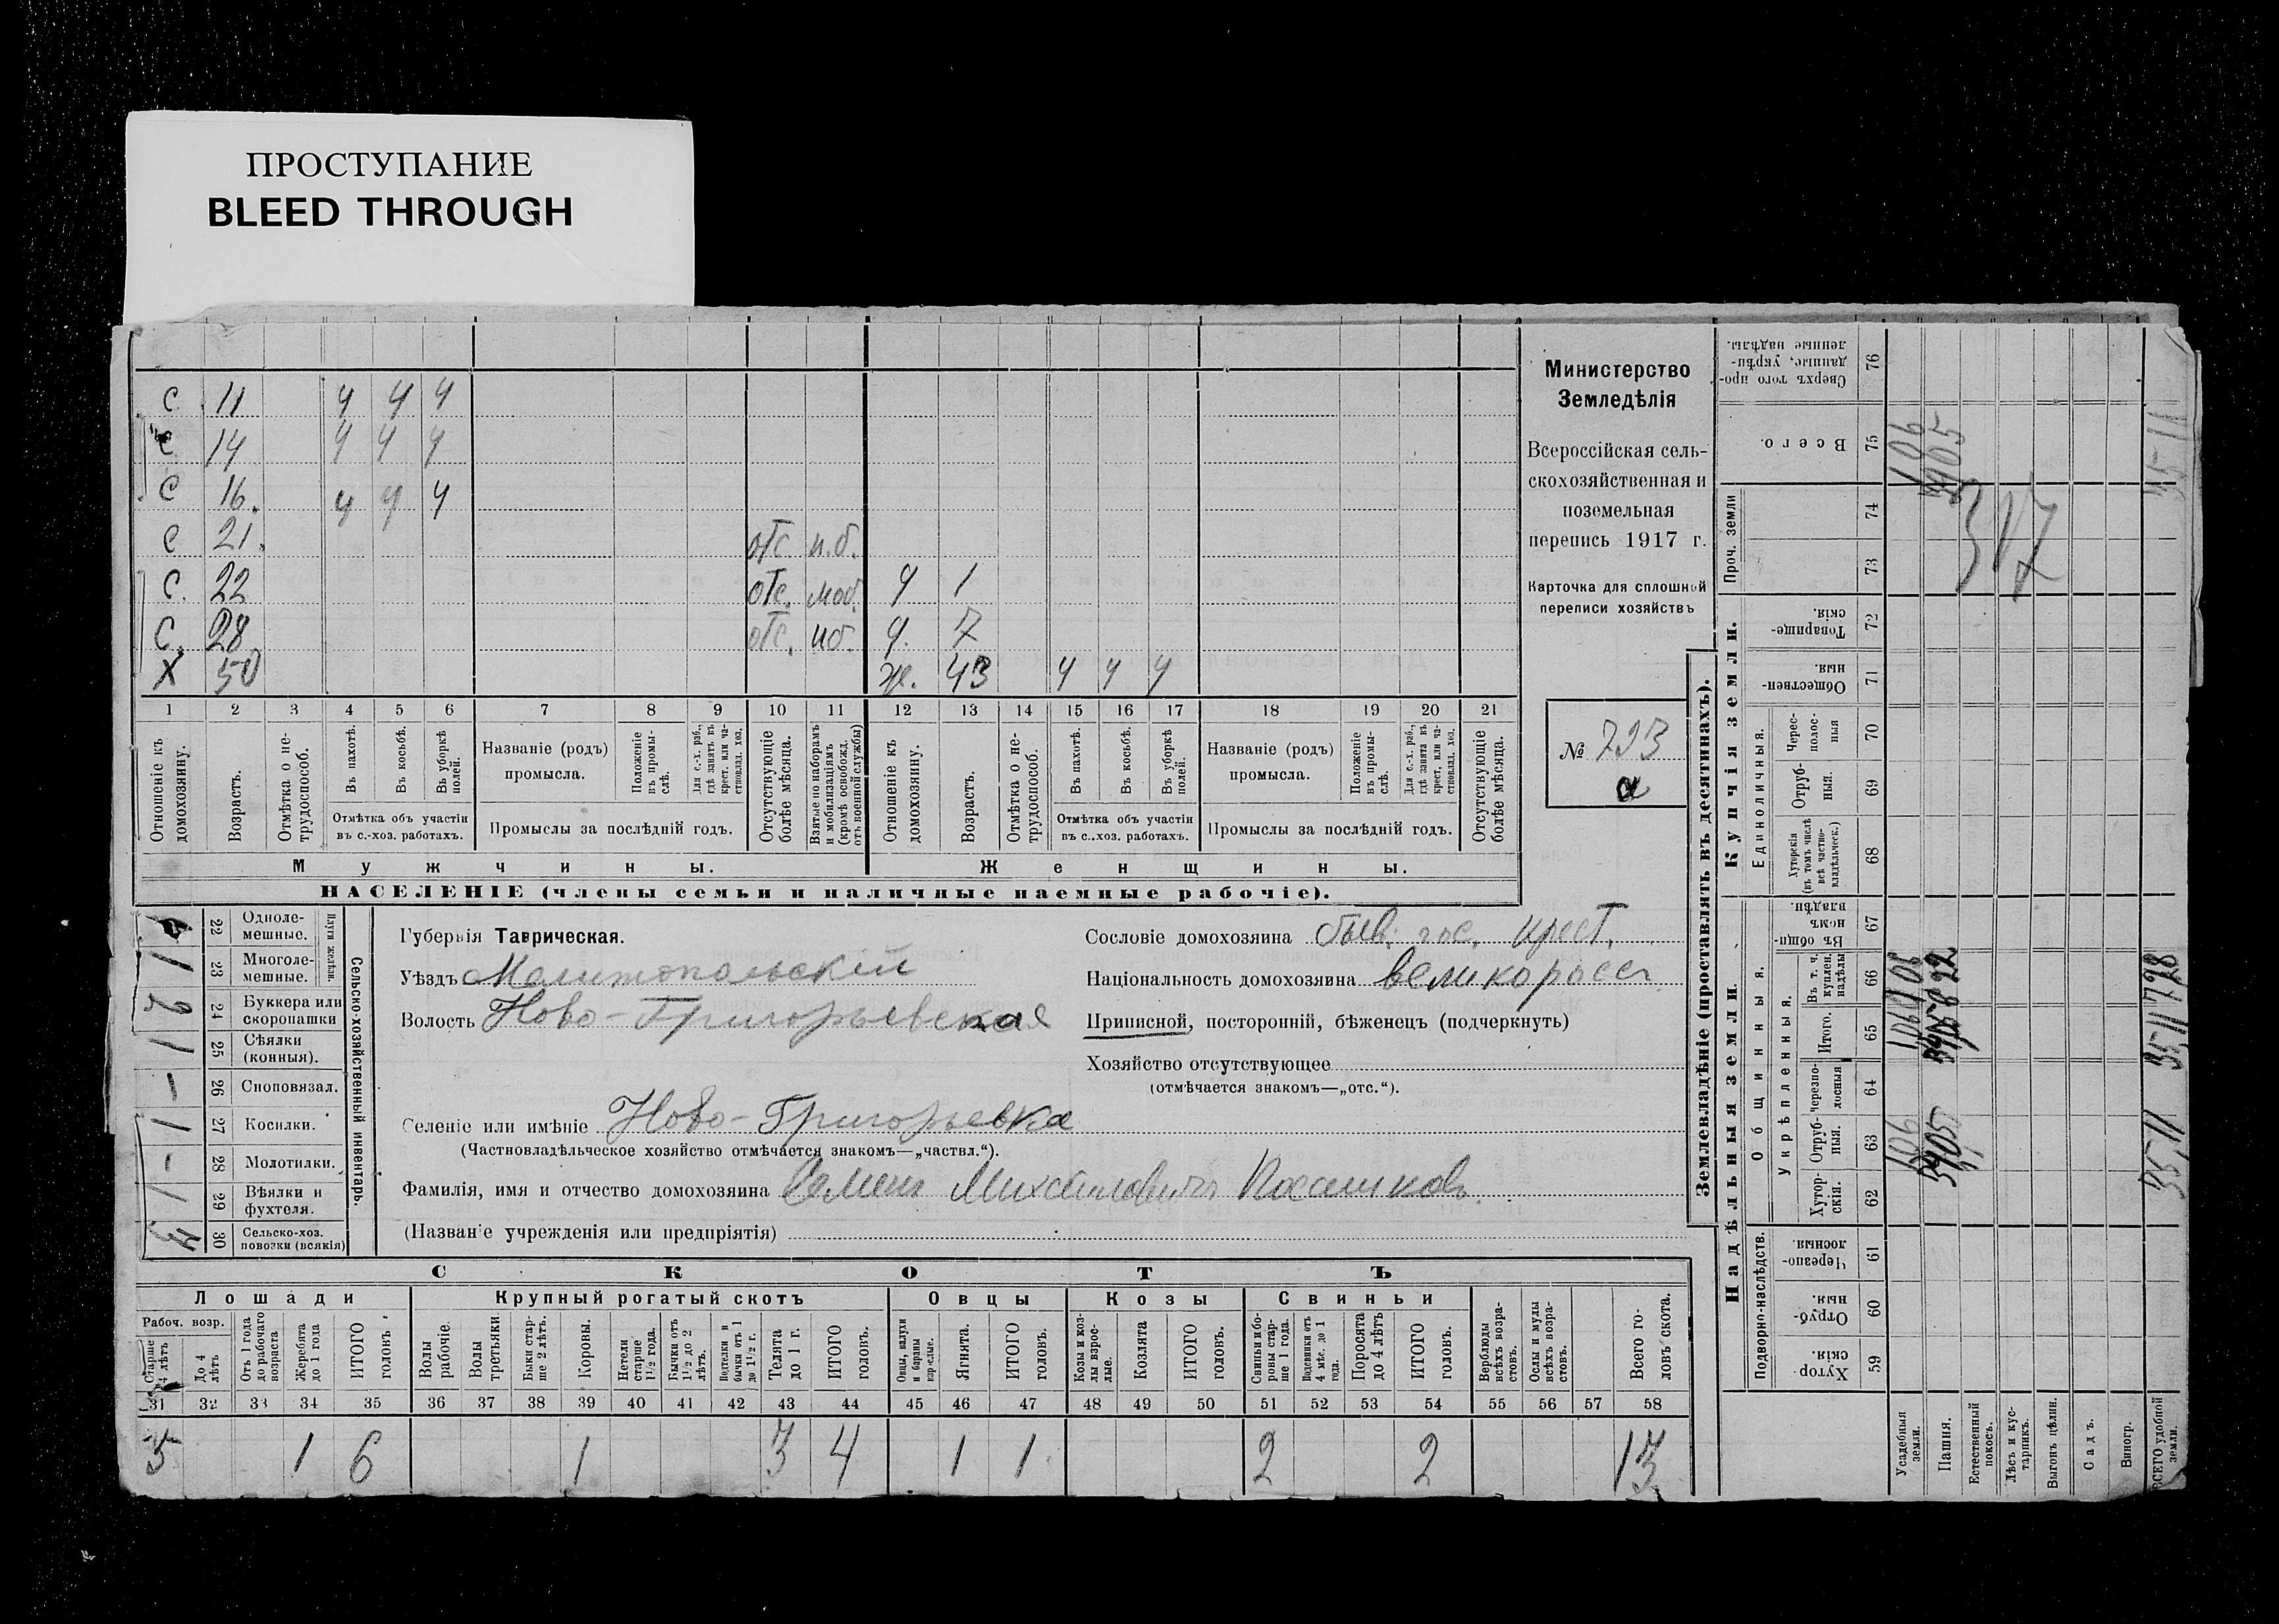 ПРОСТУПАНИЕ
BLEED THROUGH
С 11 ч ч ч
С 14 ч ч ч
С 16. ч ч ч
С 21. отс н.б.
С. 22 отс. моб. д 1
С. 28 отс. нб. д. 7
Х 50 ж. 43 ч ч ч
1 2 3 4 5 6 7 8 9 10 11 12 13 14 15 16 17 18 19 20 21
Отношеніе къ домохозяину.
Возрастъ.
Отмѣтка о нетрудоспособ.
Въ пахотѣ.
Въ косьбѣ.
Въ уборкѣ полей.
Отмѣтка объ участіи
въ с.-хоз. работахъ.
Названіе (родъ)
промысла.
Положеніе въ промыслѣ.
Для с.-х. раб., гдѣ занятъ въ крест. или частновлад. хоз.
Промыслы за послѣдній годъ.
Отсутствующіе болѣе мѣсяца.
Взятые по наборамъ и мобилизаціямъ (кромѣ освобожд. отъ военной службы)
Отношеніе къ домохозяину.
Возрастъ.
Отмѣтка о нетрудоспособ.
Въ пахотѣ.
Въ косьбѣ.
Въ уборкѣ полей.
Отмѣтка объ участіи
въ с..хоз. работахъ.
Названіе (родъ)
промысла.
Положеніе въ промыслѣ.
Для с.-х. раб., гдѣ занята въ крест. или частновлад. хоз.
Промыслы за послѣдній годъ.
Отсутствующіе болѣе мѣсяца.
Мужчины.
Женщины.
НАСЕЛЕНІЕ (члены семьи и наличные наемные рабочіе).
Министерство
Земледѣлія
Всероссійская сель-
скохозяйственная и
поземельная
перепись 1917 г.
Карточка для сплошной
переписи хозяйствъ
№ 723
а
22 Одноле-
мешные.
1 23 Многоле-
мешные.
Плуги желѣзн.
2 24 Буккера или
скоропашки
1 25 Сѣялки
(конныя).
— 26 Сноповязал.
1 27 Косилки.
- 28 Молотилки.
1 29 Вѣялки и
фухтеля.
30 Сельско-хоз.
повозки (всякія)
Сельско-хозяйственный инвентарь.
Губернія Таврическая.
Уѣздъ Мелитопольскій
Волость Ново-Григорьевская
Селеніе или имѣніе Ново-Григорьевка
(Частновладѣльческое хозяйство отмѣчается знакомъ—„частвл.“).
Фамилія, имя и отчество домохозяина Семенъ Михайловичъ
(Названіе учрежденія или предпріятія)
Сословіе домохозяина быв. гос. крест.
Національность домохозяина великороссъ
Приписной, посторонній, бѣженецъ (подчеркнуть)
Хозяйство отсутствующее
(отмѣчается знакомъ—„отс.“).
СКОТЪ
Лошади
Крупный рогатый скотъ
Овцы
Козы
Свиньи
Рабоч. возр.
Старше 4 лѣтъ
До 4 лѣтъ
Отъ 1 года до рабочаго возраста
Жеребята до 1 года
ИТОГО головъ.
Волы рабочіе.
Волы третьяки.
Быки старше 2 лѣтъ.
Коровы.
Нетели старше 1½ года.
Бычки отъ 1½ до 2 лѣтъ.
Телята до 1 г.
ИТОГО головъ.
Ягнята.
ИТОГО головъ.
Козы и козлы взрослые.
Козлята
ИТОГО головъ.
Свиньи и боровы старше 1 года.
Поросята до 4 лѣтъ
ИТОГО головъ.
Верблюды всѣхъ возрастовъ.
Ослы и мулы всѣхъ возрастовъ.
Всего головъ скота.
31 32 33 34 35 36 37 38 39 40 41 42 43 44 45 46 47 48 49 50 51 52 53 54 55 56 57 58
5 1 6 1 3 4 1 1 2 2 13
Землевладѣніе (проставлять въ десятинахъ).
Купчія земли.
Надѣльныя земли.
Сверхъ того проданные, укрѣпленные надѣлы. 76
Всего. 75
Проч. земли
74
73
Товарищескія. 72
Общественныя. 71
Единоличныя.
Чересполосныя 70
Отрубныя. 69
Хуторскія (въ томъ числѣ всѣ частновладѣльческ.) 68
Общинныя.
Въ общинномъ владѣн. 67
Укрѣпленныя.
Въ т. ч. куплен. надѣлы 66
Итого. 65
Черезполосныя 64
Отрубныя. 63
Хуторскія. 62
Подворно-наслѣдств.
Черезполосныя. 61
Отрубныя. 60
Хуторскія 59
Усадебныя земли.
Пашня.
Естественный покосъ.
Лѣсъ и кустарникъ.
Выгонъ цѣлин.
Садъ.
Виногр.
ВСЕГО удобной земли.
106
3405
317
3511
106
3405
3511